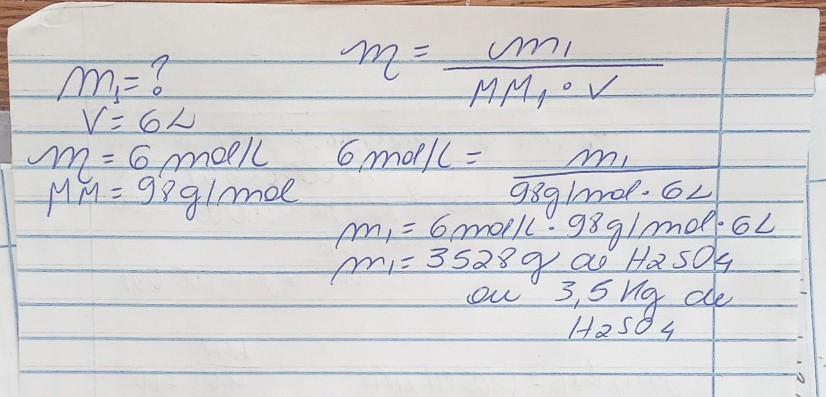 m₁ = ?
V = 6L
ɱ = 6 mol/L
MM = 98g/mol
ɱ = m₁ / MM₁ · V
6 mol/L = m₁ / 98g/mol · 6L
m₁ = 6 mol/L · 98g/mol · 6L
m₁ = 3528g de H2SO4
ou 3,5 Kg de
H2SO4